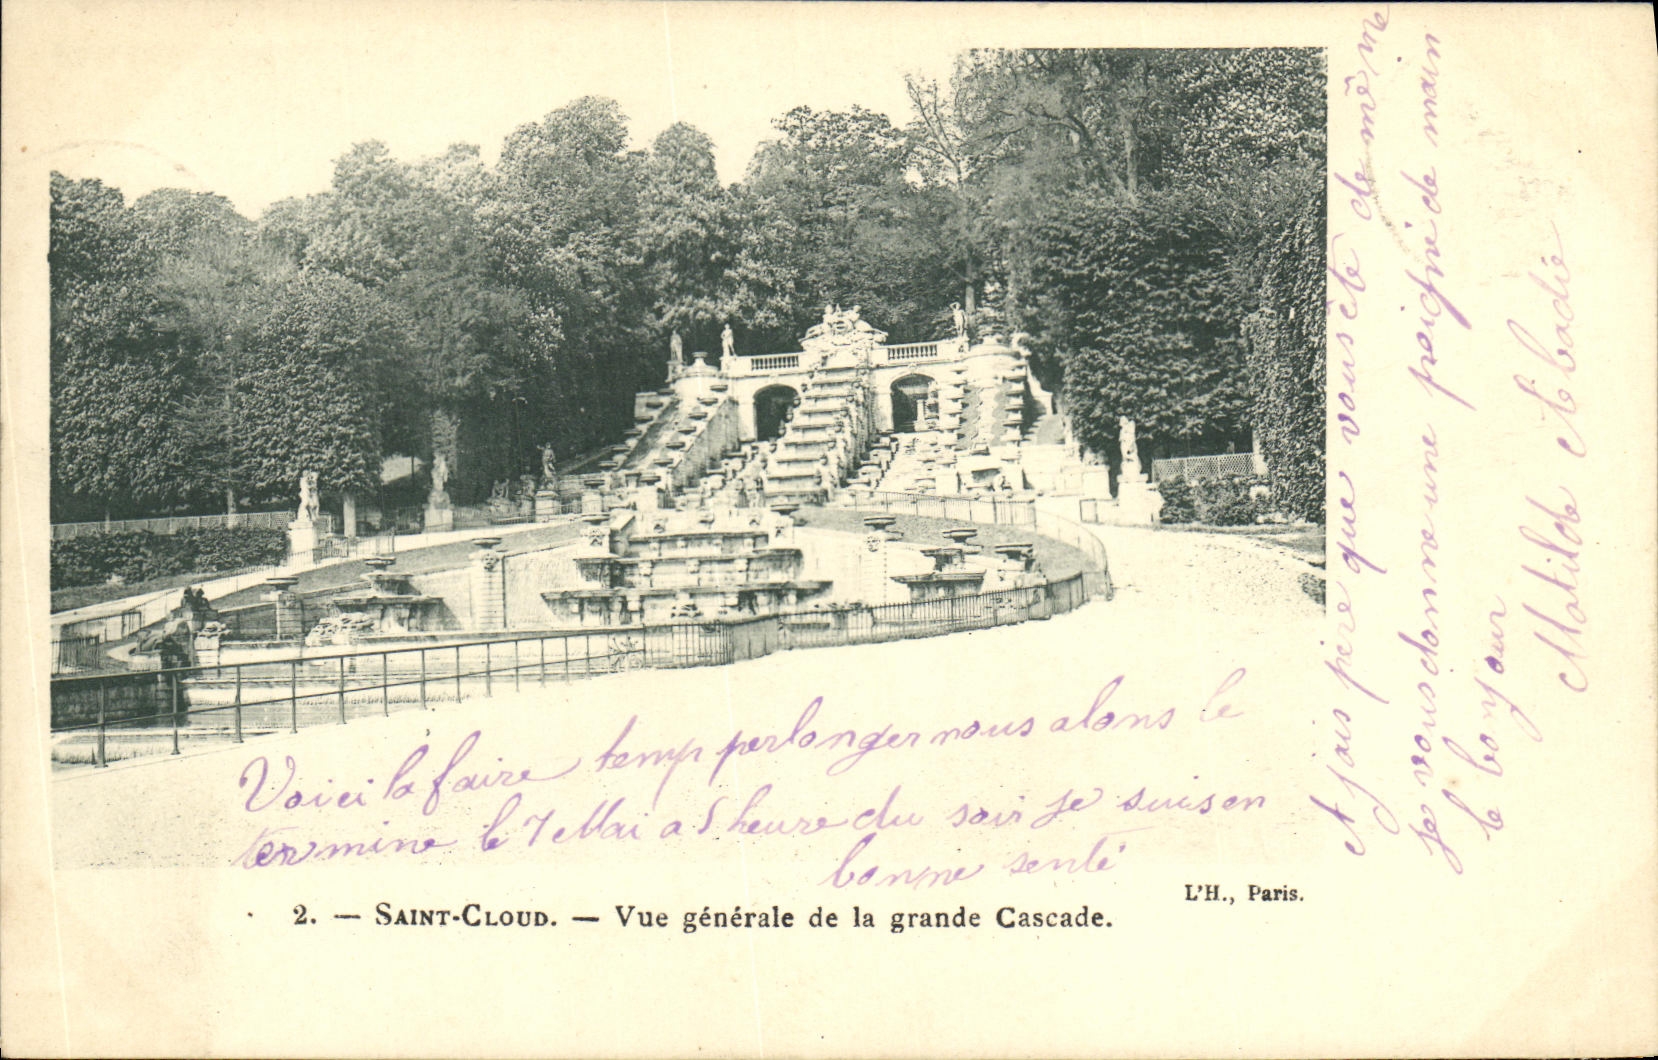 Voici la faire temp perlonger nous alons le
termine le 7 Mai a 5 heure du soir Je suis en
bonne senté
et jais pere que vous ète de même
je vous donne une poignie de main
le bonjour
Mathilde Abadie
2. — SAINT-CLOUD. — Vue générale de la grande Cascade.
L'H., Paris.